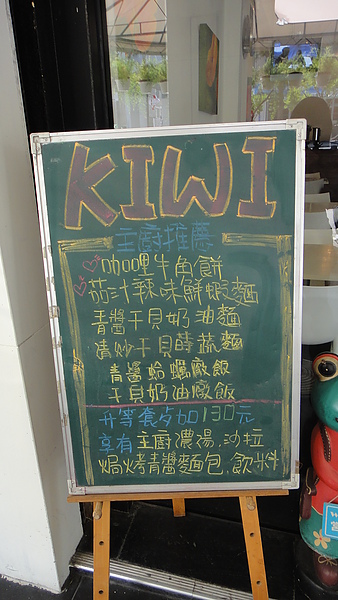 KIWI
主廚推薦
咖哩牛角餅
茄汁辣味鮮蝦麵
青醬干貝奶油麵
清炒干貝時蔬麵
青醬蛤蠣廠飯
干貝奶油廠飯
升等餐加130元
享有主廚濃湯,沙拉
焗烤青醬麵包,飲料